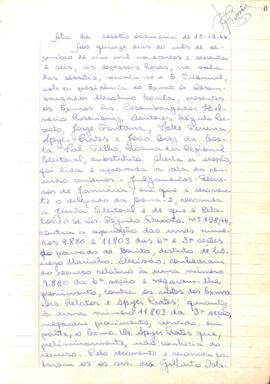 Ata da sessão ordinária de 15-12-66
Aos quinze dias do mês de de-
zembro de um mil novecentos e sessenta
e seis, às dezesseis horas, na sala
das sessões, reuniu-se o E. Tribunal,
sob a presidência do Exmo Sr Desem-
bargador Merolino Corrêa, presentes
os Exmos Srs Desembargador
Régulo
Peixoto, Jorge Fontana, Valle Ferreira,
Prates e João Braz da Costa
Val Filho, Procurador Regional
Eleitoral, substituto. Aberta a sessão,
foi lida e aprovada a ata da reu-
nião anterior. - Julgamentos: Recur-
sos de Januária, em que é recorren-
te o delegado da Arena-2, recorrida
a Junta Eleitoral e de que é Rela-
tor o Sr Des. Régulo Peixoto, nº 198/66,
contra a apuração das urnas nú-
meros 9.880 e 11803 das 6ª e 3ª seções
do povoado de Bonito, distrito de
nego Marinho. Decisão: conheceram
do recurso relativo à urna número
9.880 da 6ª seção e negaram-lhe
provimento, contra os votos dos Exmos
Srs. Relator e Prates; quanto
à urna número 11.803 da 3ª seção,
negaram provimento, vencido, em
parte, o Exmo Sr Prates que,
preliminarmente, não conhecia do
recurso. Pelo recorrente e recorrida fala-
ram os srs. drs. Gilberto